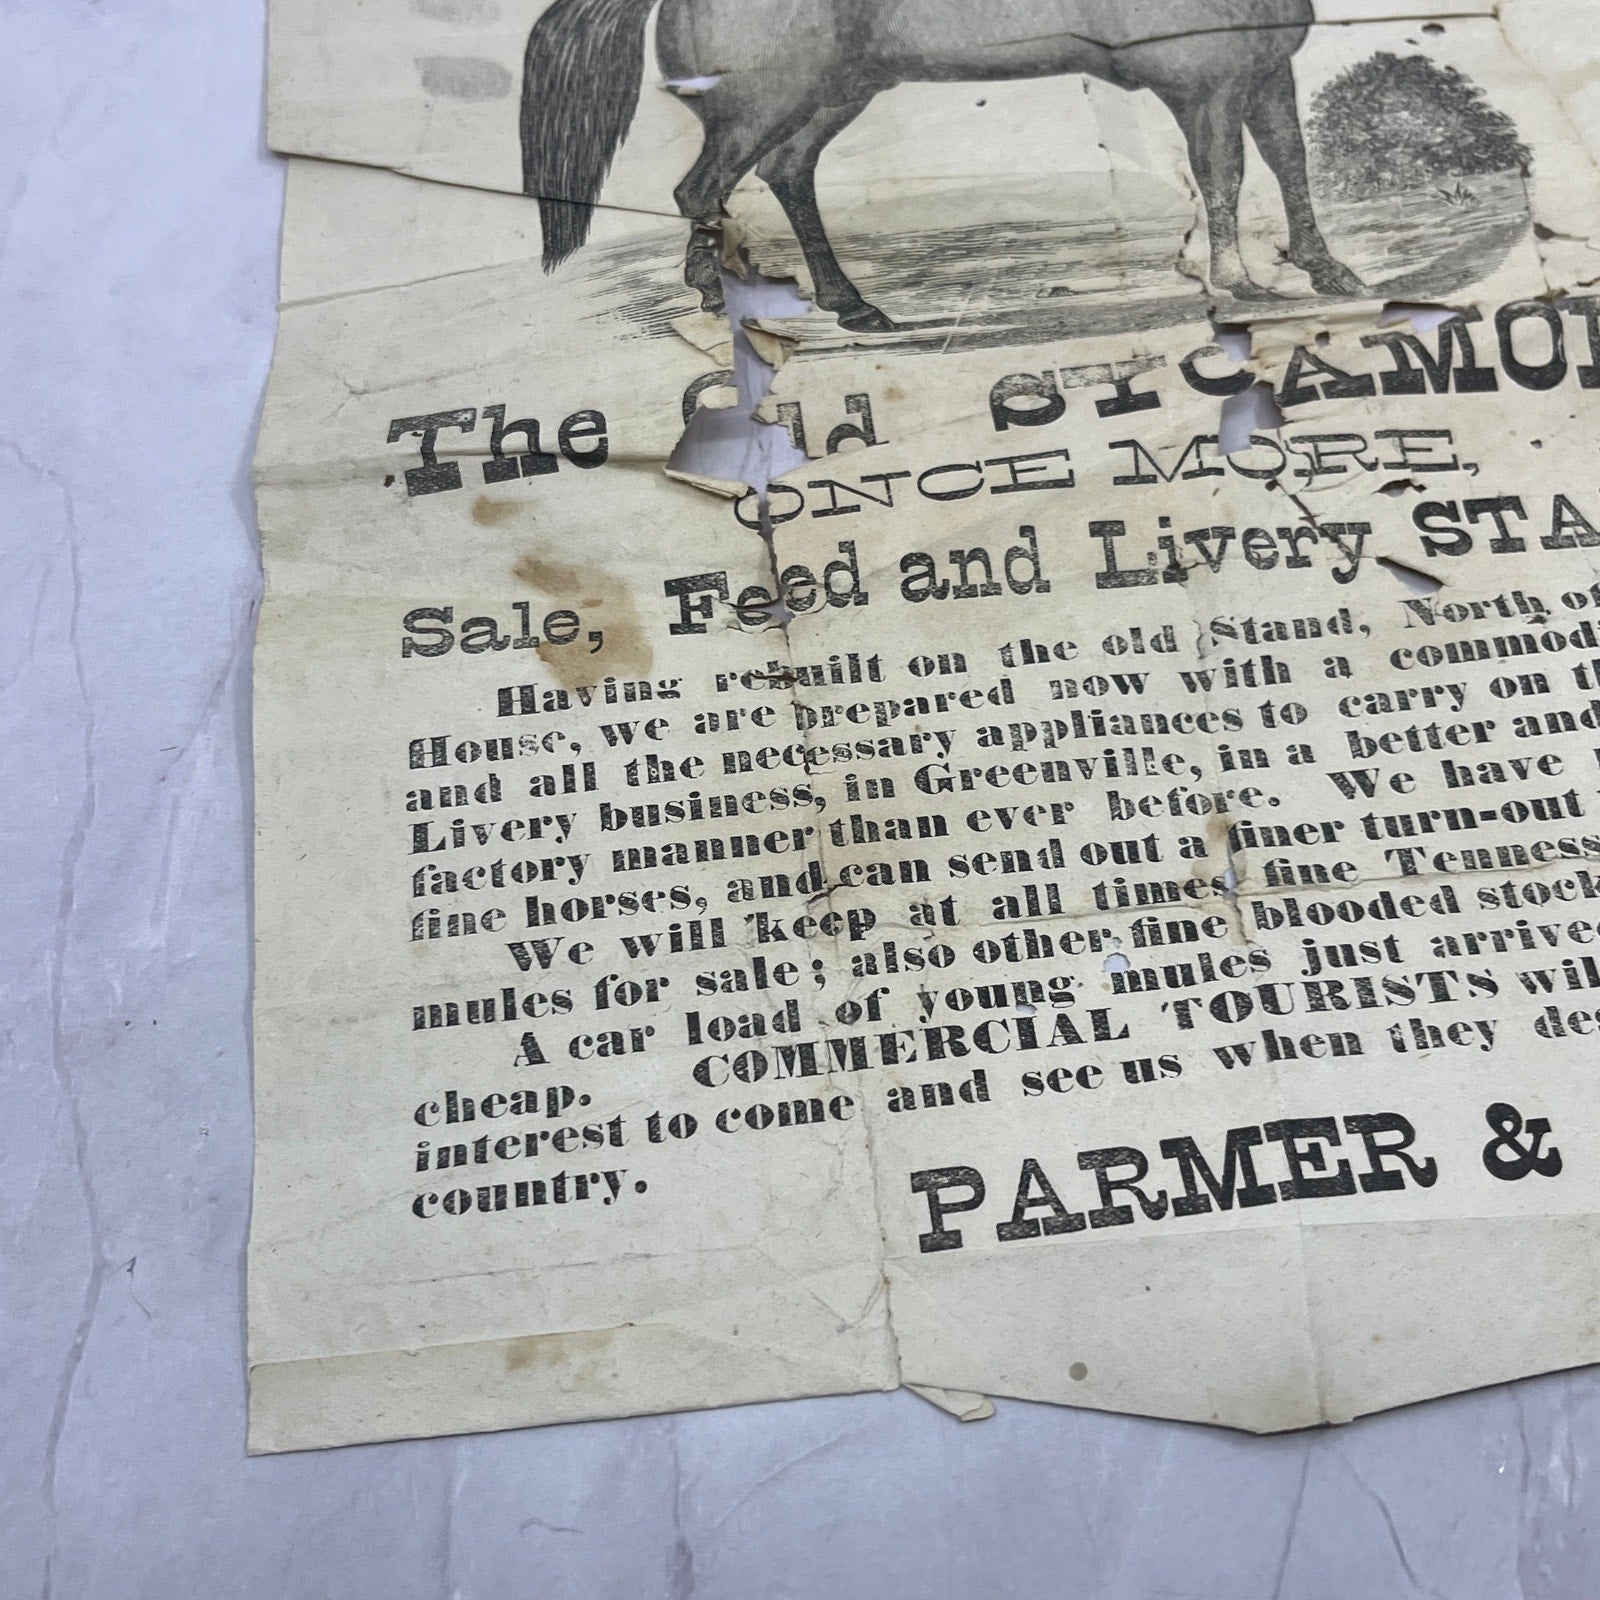 The Old SYCAMOR
ONCE MORE,
Sale, Feed and Livery STA
Having rebuilt on the old Stand, North of
House, we are prepared now with a commodi
and all the necessary appliances to carry on th
Livery business, in Greenville, in a better and
factory manner than ever before. We have
fine horses, and can send out a finer turn-out
We will keep at all times fine Tenness
mules for sale; also other fine blooded stock
A car load of young mules just arrive
cheap. COMMERCIAL TOURISTS wil
interest to come and see us when they des
country.
PARMER &